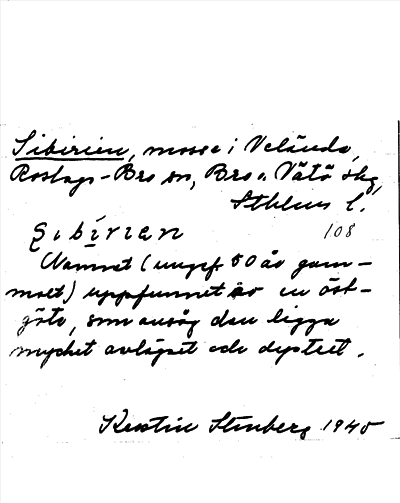 Sibirien, mosse i Velända,
Roslags-Bro sn, Bro o. Vätö skg,
Sthlms l.
Sibirien 108
Namnet (ungef. 50 år gam-
malt) uppfunnet av en öst-
göte, som ansåg den ligga
mycket avlägset och dystert.
Kerstin Stenberg 1945